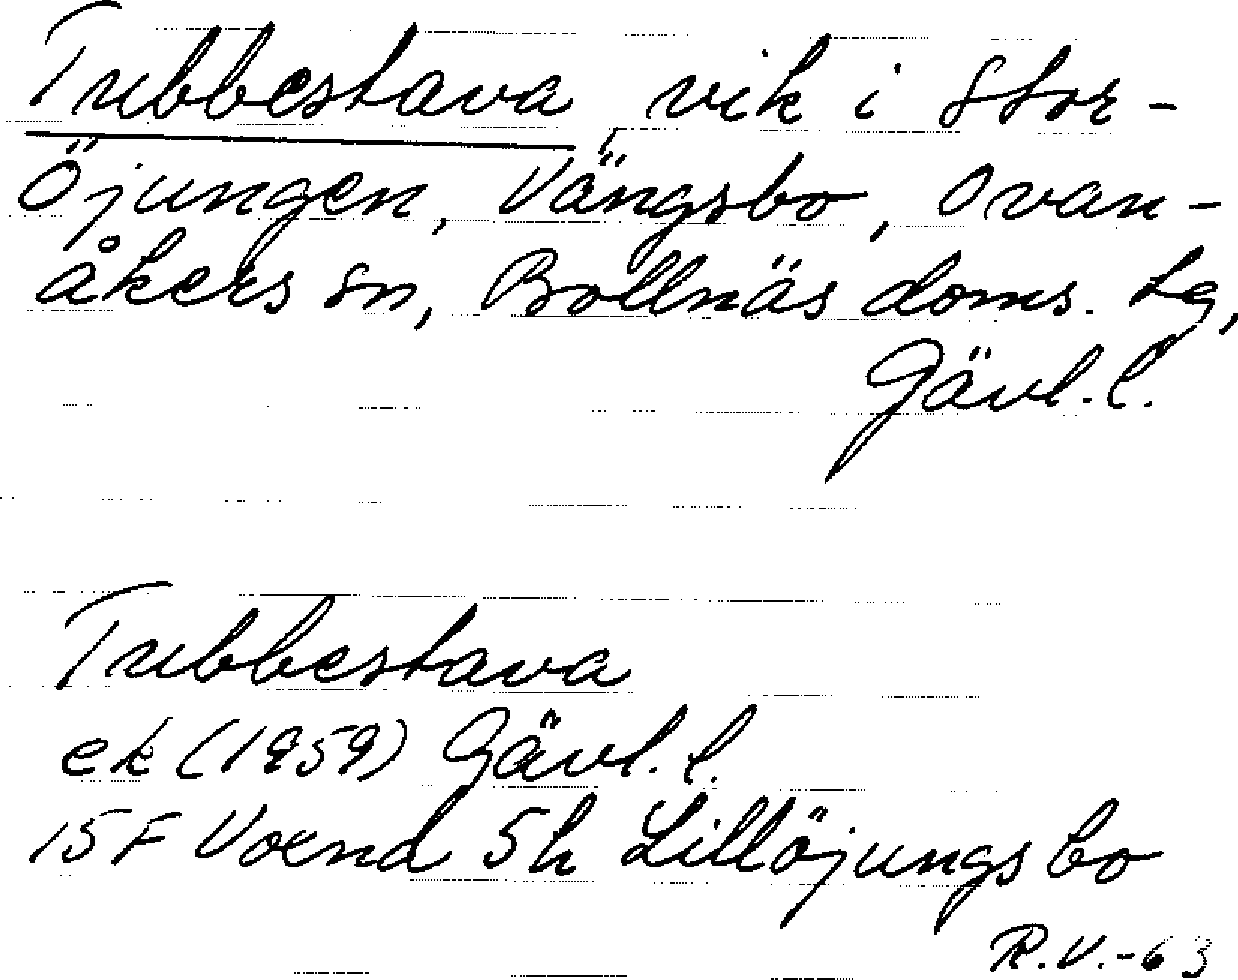 Tubbestava, vik i Stor-
Öjungen, Vängsbo, Ovan-
åkers sn, Bollnäs doms. lg,
Gävl. l.
Tubbestava
ek (1959) Gävl. l.
15F Voxna 5h Lillöjungsbo
R.V.-63